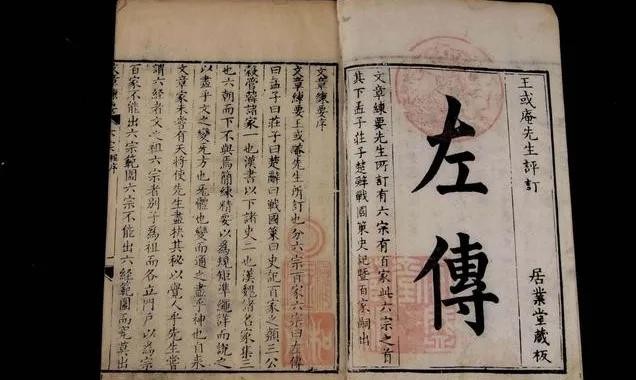 王或庵先生評訂
居業堂藏板
左傳
文章練要先生所訂有六宗有百家此六宗之首
其下孟子莊子楚辭戰國策史記暨百家嗣出
文章練要序
文章練要王或庵先生所訂也分六宗百家六宗曰左傳
曰孟子曰莊子曰楚辭曰戰國策曰史記百家之類三公
穀管韓諸家一也漢書以下諸史二也漢魏諸名家集三
也六朝而下不與焉簡練精要以為繩矩準繩評而說之
以盡乎文之變先方也死體也變而通之盡乎神也自來
文章家未嘗有天將使先生盡抉其秘以覺人乎先生嘗
謂六經者文之祖六宗者別子為祖而各立門戶以為宗
百家不能出六宗範圍六宗不能出六經範圍而究莫出